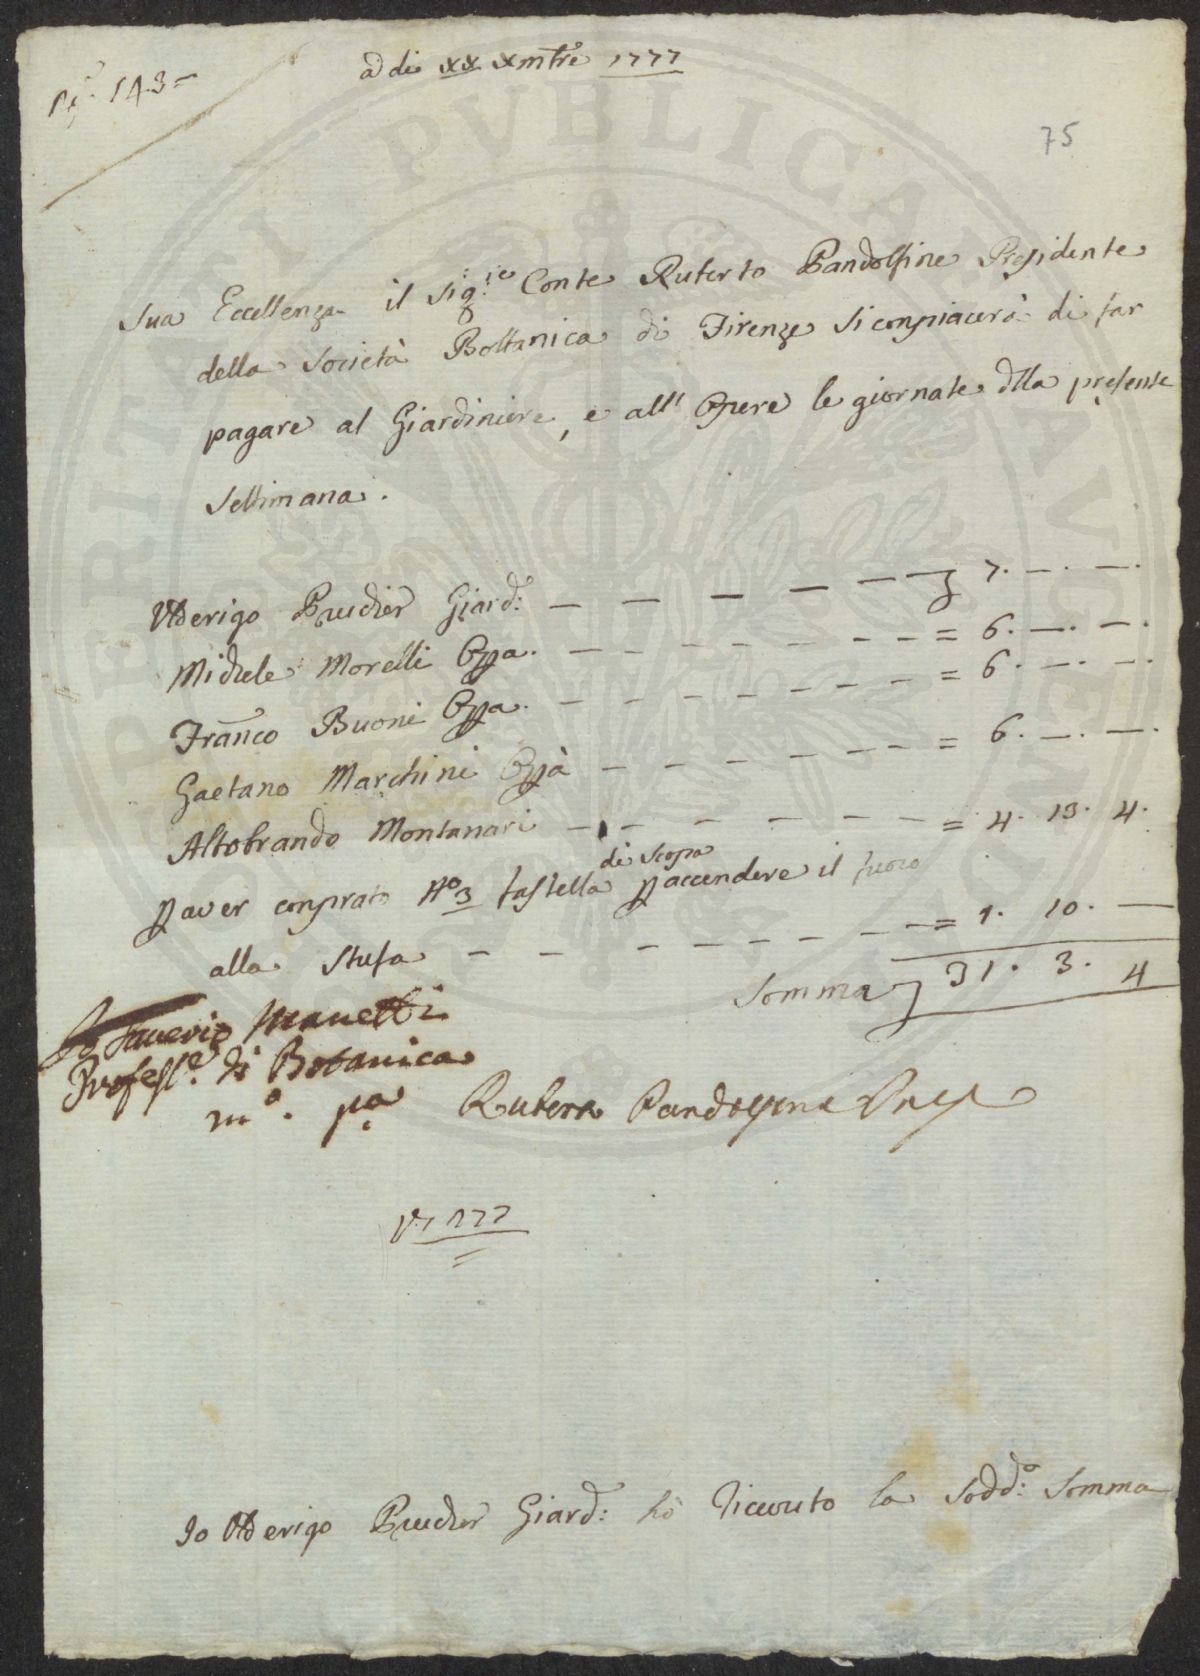 a di xx xmbre 1777
143=
75
Sua Eccellenza il Sig:re Conte Ruberto Pandolfine Presidente
della Società Bottanica di Firenze si conpiacerà di far
pagare al Giardiniere, e all' Opere le giornate dlla presente
Settimana.
Uderigo Prucher Giard: — — — — — — 7. —. —.
Michele Morelli Oppa. — — — — — — = 6. —. —.
Franco Buoni Oppa. — — — — — — = 6. —. —.
Gaetano Marchini Oppà — — — — — — = 6. —. —.
Altobrando Montanari — — — — — — = 4. 13. 4.
di scopa
p aver conprato No 3 fastella p accendere il fuoco
alla stufa — — — — — — = 1. 10. —
Somma 31. 3. 4
Io Saverio Manetti
Profess.e di Botanica
m.o pa
Ruberto Pandolfini Pres
177
Io Uderigo Prucher Giard: hò riceuto la Sodd:a Somma
PERITATI PVBLICAE AVGENDAE